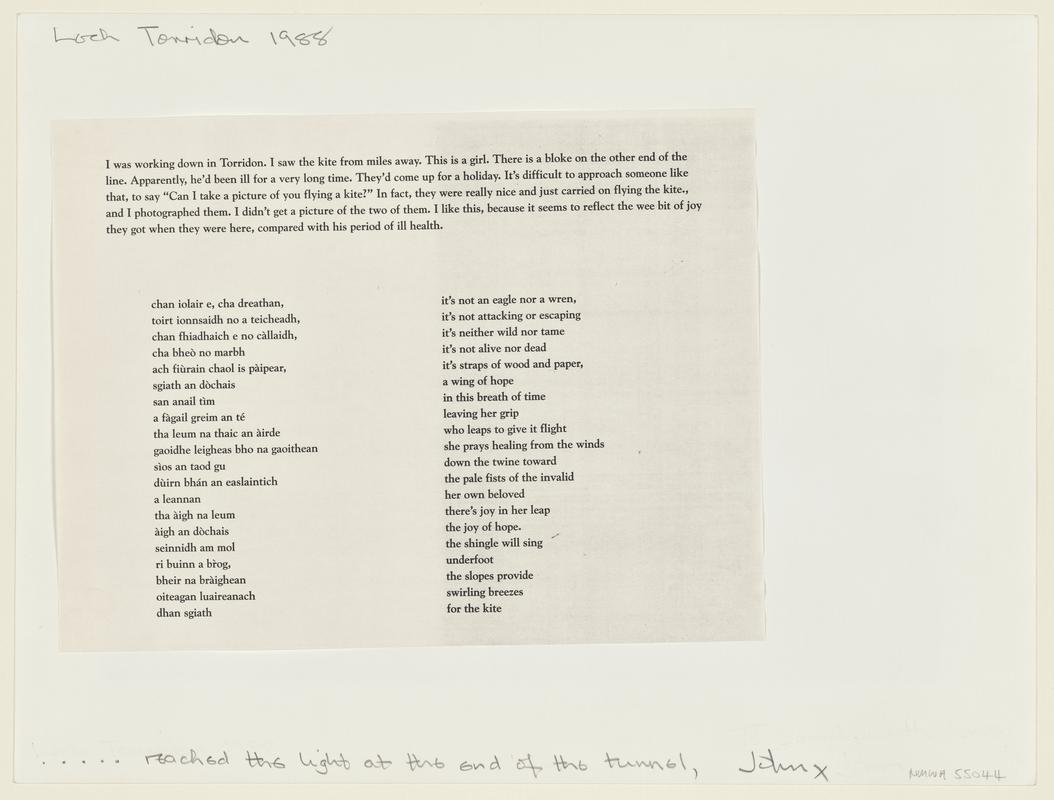 Loch Torridon 1988
I was working down in Torridon. I saw the kite from miles away. This is a girl. There is a bloke on the other end of the
line. Apparently, he'd been ill for a very long time. They'd come up for a holiday. It's difficult to approach someone like
that, to say “Can I take a picture of you flying a kite?” In fact, they were really nice and just carried on flying the kite.,
and I photographed them. I didn't get a picture of the two of them. I like this, because it seems to reflect the wee bit of joy
they got when they were here, compared with his period of ill health.
chan iolair e, cha dreathan,
toirt ionnsaidh no a teicheadh,
chan fhiadhaich e no càllaidh,
cha bheò no marbh
ach fiùrain chaol is pàipear,
sgiath an dòchais
san anail tìm
a fàgail greim an té
tha leum na thaic an àirde
gaoidhe leigheas bho na gaoithean
sìos an taod gu
dùirn bhán an easlaintich
a leannan
tha àigh na leum
àigh an dòchais
seinnidh am mol
ri buinn a bròg,
bheir na bràighean
oiteagan luaireanach
dhan sgiath
it's not an eagle nor a wren,
it's not attacking or escaping
it's neither wild nor tame
it's not alive nor dead
it's straps of wood and paper,
a wing of hope
in this breath of time
leaving her grip
who leaps to give it flight
she prays healing from the winds
down the twine toward
the pale fists of the invalid
her own beloved
there's joy in her leap
the joy of hope.
the shingle will sing
underfoot
the slopes provide
swirling breezes
for the kite
..... reached the light at the end of the tunnel, John x
NMWA 55044